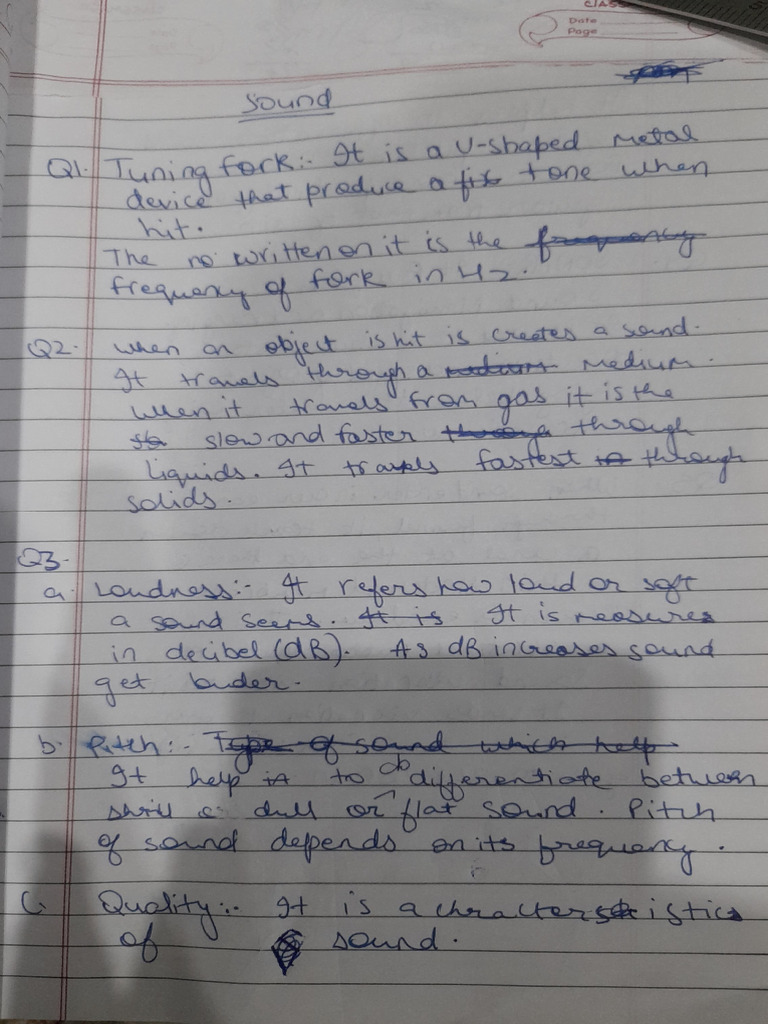 CLASS
Date
Page
Sound
Q1. Tuning fork:- It is a U-shaped metal
device that produce a tone when
hit.
The no written on it is the frequency
frequency of fork in Hz.
Q2. when an object is hit is creates a sound.
It travels through a medium medium.
when it travels from gas it is the
slow and faster through
liquids. It travels fastest through
solids.
Q3.
a. Loudness:- It refers how loud or soft
a sound seems. It is It is measures
in decibel (dB). As dB increases sound
get louder.
b. Pitch:- Type of sound which help
It help to differentiate between
shrill dull or flat sound. Pitch
of sound depends on its frequency.
C. Quality:- It is a characteristics
of sound.